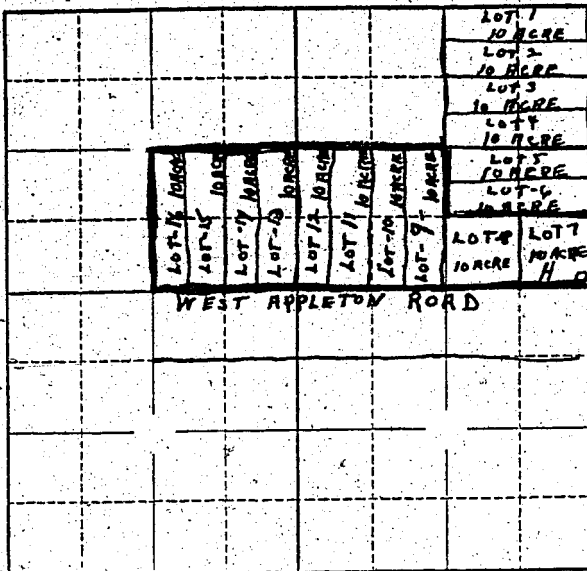 LOT 1
10 ACRE
LOT 2
10 ACRE
LOT 3
10 ACRE
LOT 4
10 ACRE
LOT 5
10 ACRE
LOT-6
10 ACRE
LOT 8
10 ACRE
LOT 7
10 ACRE
H
LOT-16 10 ACRE
LOT-15 10 ACR
LOT-14 10 ACRE
LOT-13 10 ACRE
LOT 12 10 ACRE
LOT 11 10 ACRE
LOT-10 10 ACRE
LOT-9- 10 ACRE
WEST APPLETON ROAD